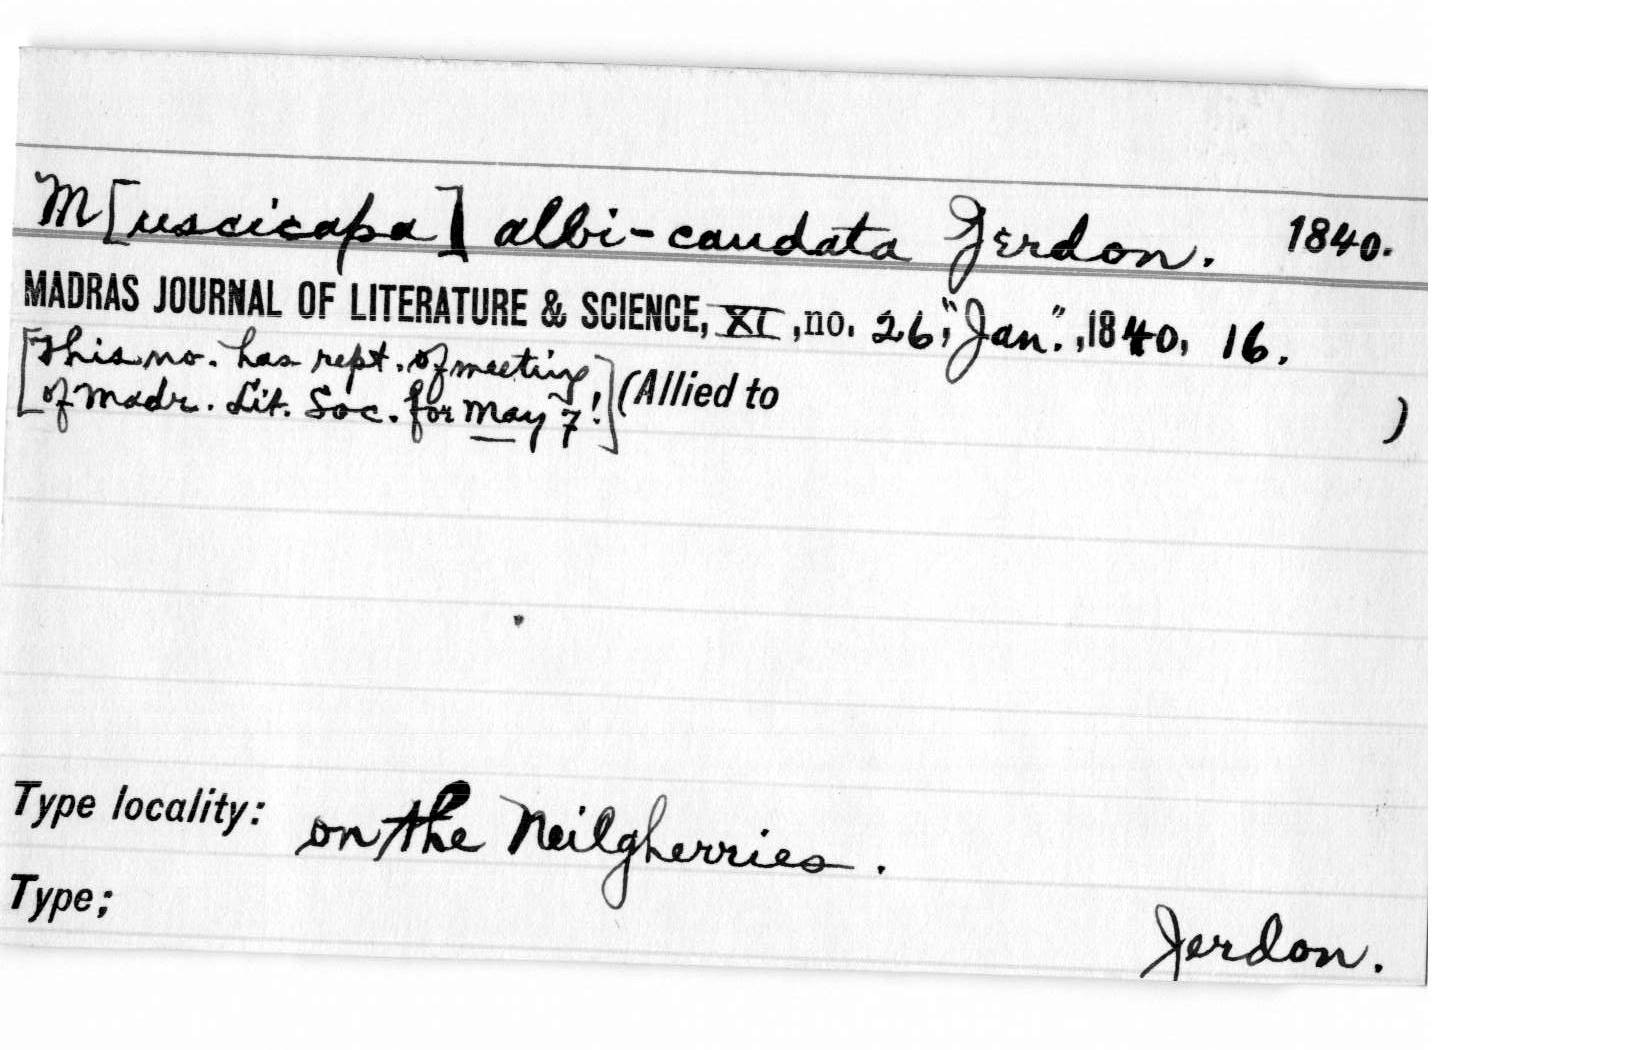 M[uscicapa] albi-caudata Jerdon. 1840.
MADRAS JOURNAL OF LITERATURE & SCIENCE, XI, no. 26, "Jan.", 1840, 16.
[This no. has rept. of meeting
of Madr. Lit. Soc. for May 7!] (Allied to )
Type locality: on the Neilgherries.
Type;
Jerdon.